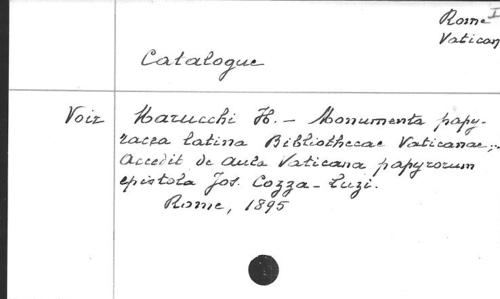 Rome I
Vatican
Catalogue
Voir Marucchi H. - Monumenta papy-
racea latina Bibliothecae Vaticanae;-
Accedit de aula Vaticana papyrorum
epistola Jos. Cozza-Luzi.
Rome, 1895